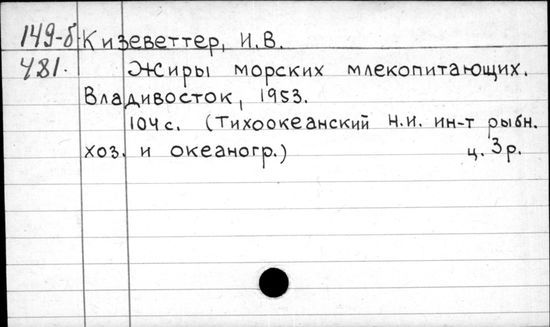 149-б Кизеветтер, И.В.
481. Жиры морских млекопитающих.
Владивосток, 1953.
104 с. (Тихоокеанский н.и. ин-т рыбн.
хоз. и океаногр.) ц. 3 р.